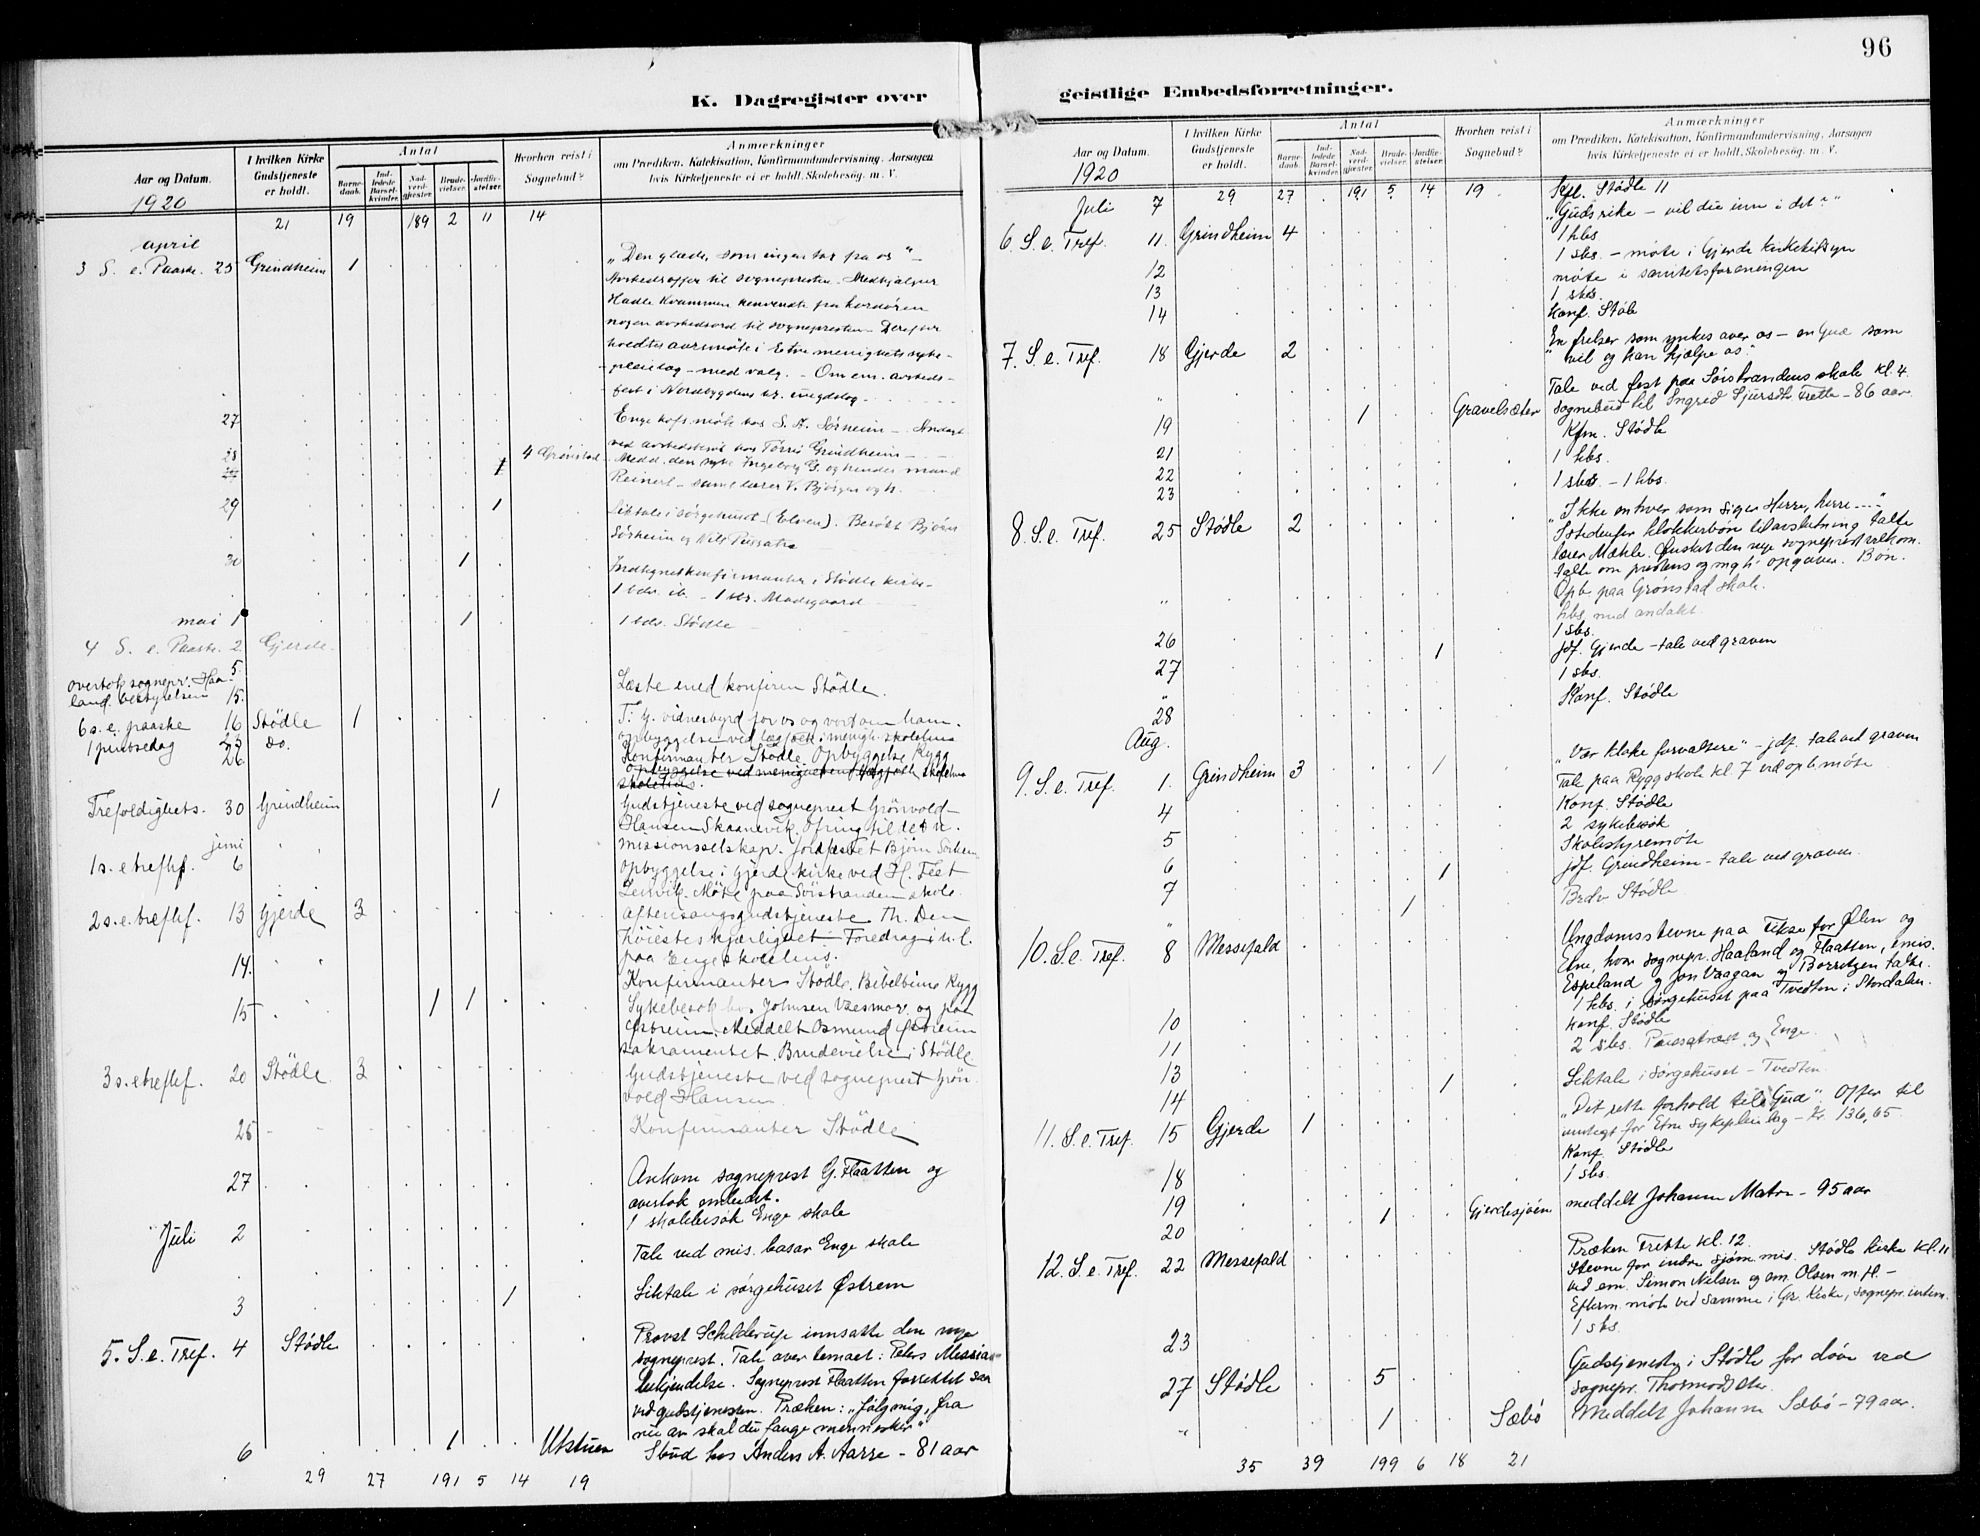 96
K. Dagregister over geistlige Embedsforretninger.
Aar og Datum. 1920
I hvilken Kirke Gudstjeneste er holdt.
Antal
Barnedaab.
Indledede Barselkvinder.
Nadverdgjæster.
Brudevielser.
Jordfæstelser.
Hvorhen reist i Sognebud?
Anmærkninger
om Prædiken, Katekisation, Konfirmandundervisning, Aarsagen
hvis Kirketjeneste ei er holdt, Skolebesøg. m. V.
21 19 189 2 11 14
april
3 S. e. Paaske. 25 Grindheim 1 „Den glæde, som ingen tar fra os" –
Avskedsoffer til sognepresten. Medhjælper
Hadle Kvammen henvendte fra kordøren
nogen avskedsord til sognepresten – Derefter
holdtes aarsmøte i Etne menighets syke-
pleielag – med valg. – Om em. avskeds-
fest i Nordbygdens kr. ungdslag.
27
28 4 Grønstad
Reinert – samt lærer V. Bjørgen
29 1 Liktale i sørgehuset (Elven). Besøkt Bjørn
Sørheim og Nils
30 1 Indtegnet konfirmanter i Stødle kirke –
mai 1 1 1 bdv. Stødle –
4 S. e. Paaske. 2 Gjerde
5.
overtok sognepr. Haa-
land bestyrelsen 15. Læste med konfirm Stødle.
6 s. e. paaske 16 Stødle 1 T. y. vidnesbyrd for os og vort om ham.
1 pintsedag 23 do. opbyggelse ved i menigh. skolehus
26. Konfirmanter Stødle. Opbyggelse Rygg
Trefoldighets. 30 Grindheim 1 Gudstjeneste ved sogneprest Grønvold
Hansen Skaanevik. Ofring til det n.
missionsselskap. Jordfæstet Bjørn Sørheim
juni
1 s. e trefhf. 6 Opbyggelse i Gjerde kirke ved H. Teet
Leirvik. Møte paa Sørstranden skole.
2 s. e. trefhf. 13 Gjerde 3 Aftensangsgudstjeneste Th. Den
høiestes kjærlighet. Foredrag i u. l.
paa Enge skolehus.
14. Konfirmanter Stødle. Bibeltime Rygg
15 1 1 Sykebesøk hos Johnsen Væsmor. og paa
Østreim. Meddelt Osmund Østreim
sakramentet. Brudevielse i Stødle
3 s. e trefhf. 20 Stødle 3 Gudstjeneste ved sogneprest Grøn-
vold Hansen.
25 Konfirmanter Stødle
27 Ankom sogneprest G. Flaatten og
overtok embedet.
Juli 2 1 skolebesøk Enge skole
Tale ved mis. basar Enge skole
3 1 Liktale i sørgehuset Østrem
5. S. e. Tref. 4 Stødle Provst Schilderup innsatte den nye
sogneprest. Tale over temaet: Peters Messias-
bekjendelse. Sogneprest Flaatten forrettet saa
ved gudstjenesten. Præken: „følg mig, fra
nu av skal du fange mennesker"
6 1 Utstuen Sbud hos Anders A. Aarre – 81 aar
29 27 191 5 14 19
Aar og Datum. 1920
I hvilken Kirke Gudstjeneste er holdt.
Antal
Barnedaab.
Indledede Barselkvinder.
Nadverdgjæster.
Brudevielser.
Jordfæstelser.
Hvorhen reist i Sognebud?
Anmærkninger
om Prædiken, Katekisation, Konfirmandundervisning, Aarsagen
hvis Kirketjeneste ei er holdt, Skolebesøg. m. V.
29 27 191 5 14 19
Juli 7 Stødle 11
6 S. e. Tref. 11. Grindheim 4 „Guds rike – vil du inn i det?"
1 hbs
12 1 sbs. – møte i Gjerde kirketilsyn
13 møte i samtetsforeningen
1 sbs.
14 Konf. Stødle
7. S. e. Tref. 18 Gjerde 2 En frelser som ynkes over os – en Gud som
vil og kan hjælpe os."
Tale ved fest paa Sørstrandens skole kl. 4.
" 1 Gravelsæter sognebud til Ingred Sjursdtr. Frette – 86 aar
19 Kfm. Stødle
21 1 hbs.
22
23 1 sbs – 1 hbs.
8. S. e. Tref. 25 Stødle 2 „Ikke enhver som siger Herre, herre – –"
Istedenfor klokkerbøn til avslutning talte
lærer Mæhle. Ønsket den nye sogneprest velkom.
talte om prestens og mgh. opgaver. Bøn.
" Opb. paa Grønstad skole.
hbs. med andakt
26 1 sbs.
27 1 jdf. Gjerde – tale ved graven
" 1 sbs.
28 Konf. Stødle
Aug.
9. S. e. Tref. 1. Grindheim 3 1 „Vær kloke forvaltere" – jdf. tale ved graven
Tale paa Rygg skole kl. 7 ved opb. møte
4 Konf. Stødle
5 2 sykebesøk
6 Skolestyremøte
7 1 jdf. Grindheim – tale ved graven.
" 1 Brdv Stødle
10. S. e. Tref. 8 Messefald Ungdomsstevne paa Fikse for Ølen og
Etne, hvor sognepr. Haaland og Flaatten, emis.
Espeland og Jon Vaagan og Borretzen talte.
1 hbs. i sørgehuset paa Tvedten i Stordalen.
10 Konf. Stødle
11 2 sbs. og Enge.
13
14 1 Liktale i sørgehuset – Tvedten
11. S. e. Tref. 15 Gjerde 1 „Det rette forhold til Gud". Offer til
inntegt for Etne sykepleielag – kr. 136,65
18 Konf. Stødle
19 1 sbs.
20 1 Gjerdesjøen meddelt Johanne Matre – 95 aar
12. S. e. Tref. 22 Messefald Præken Frette kl. 12.
Stevne for indre sjøm. mis. Stødle kirke kl. 11
ved em. Simon Nilsen og em. Olsen m. fl. –
Efterm. møte ved samme i Gr. kirke, sognepr. intem.
23 1 sbs.
27 Stødle 5 Gudstjeneste i Stødle for døve ved
sognepr. Thormodsæter.
" 1 Sæbø Meddelt Johanne Sæbø – 79 aar.
35 39 199 6 18 21